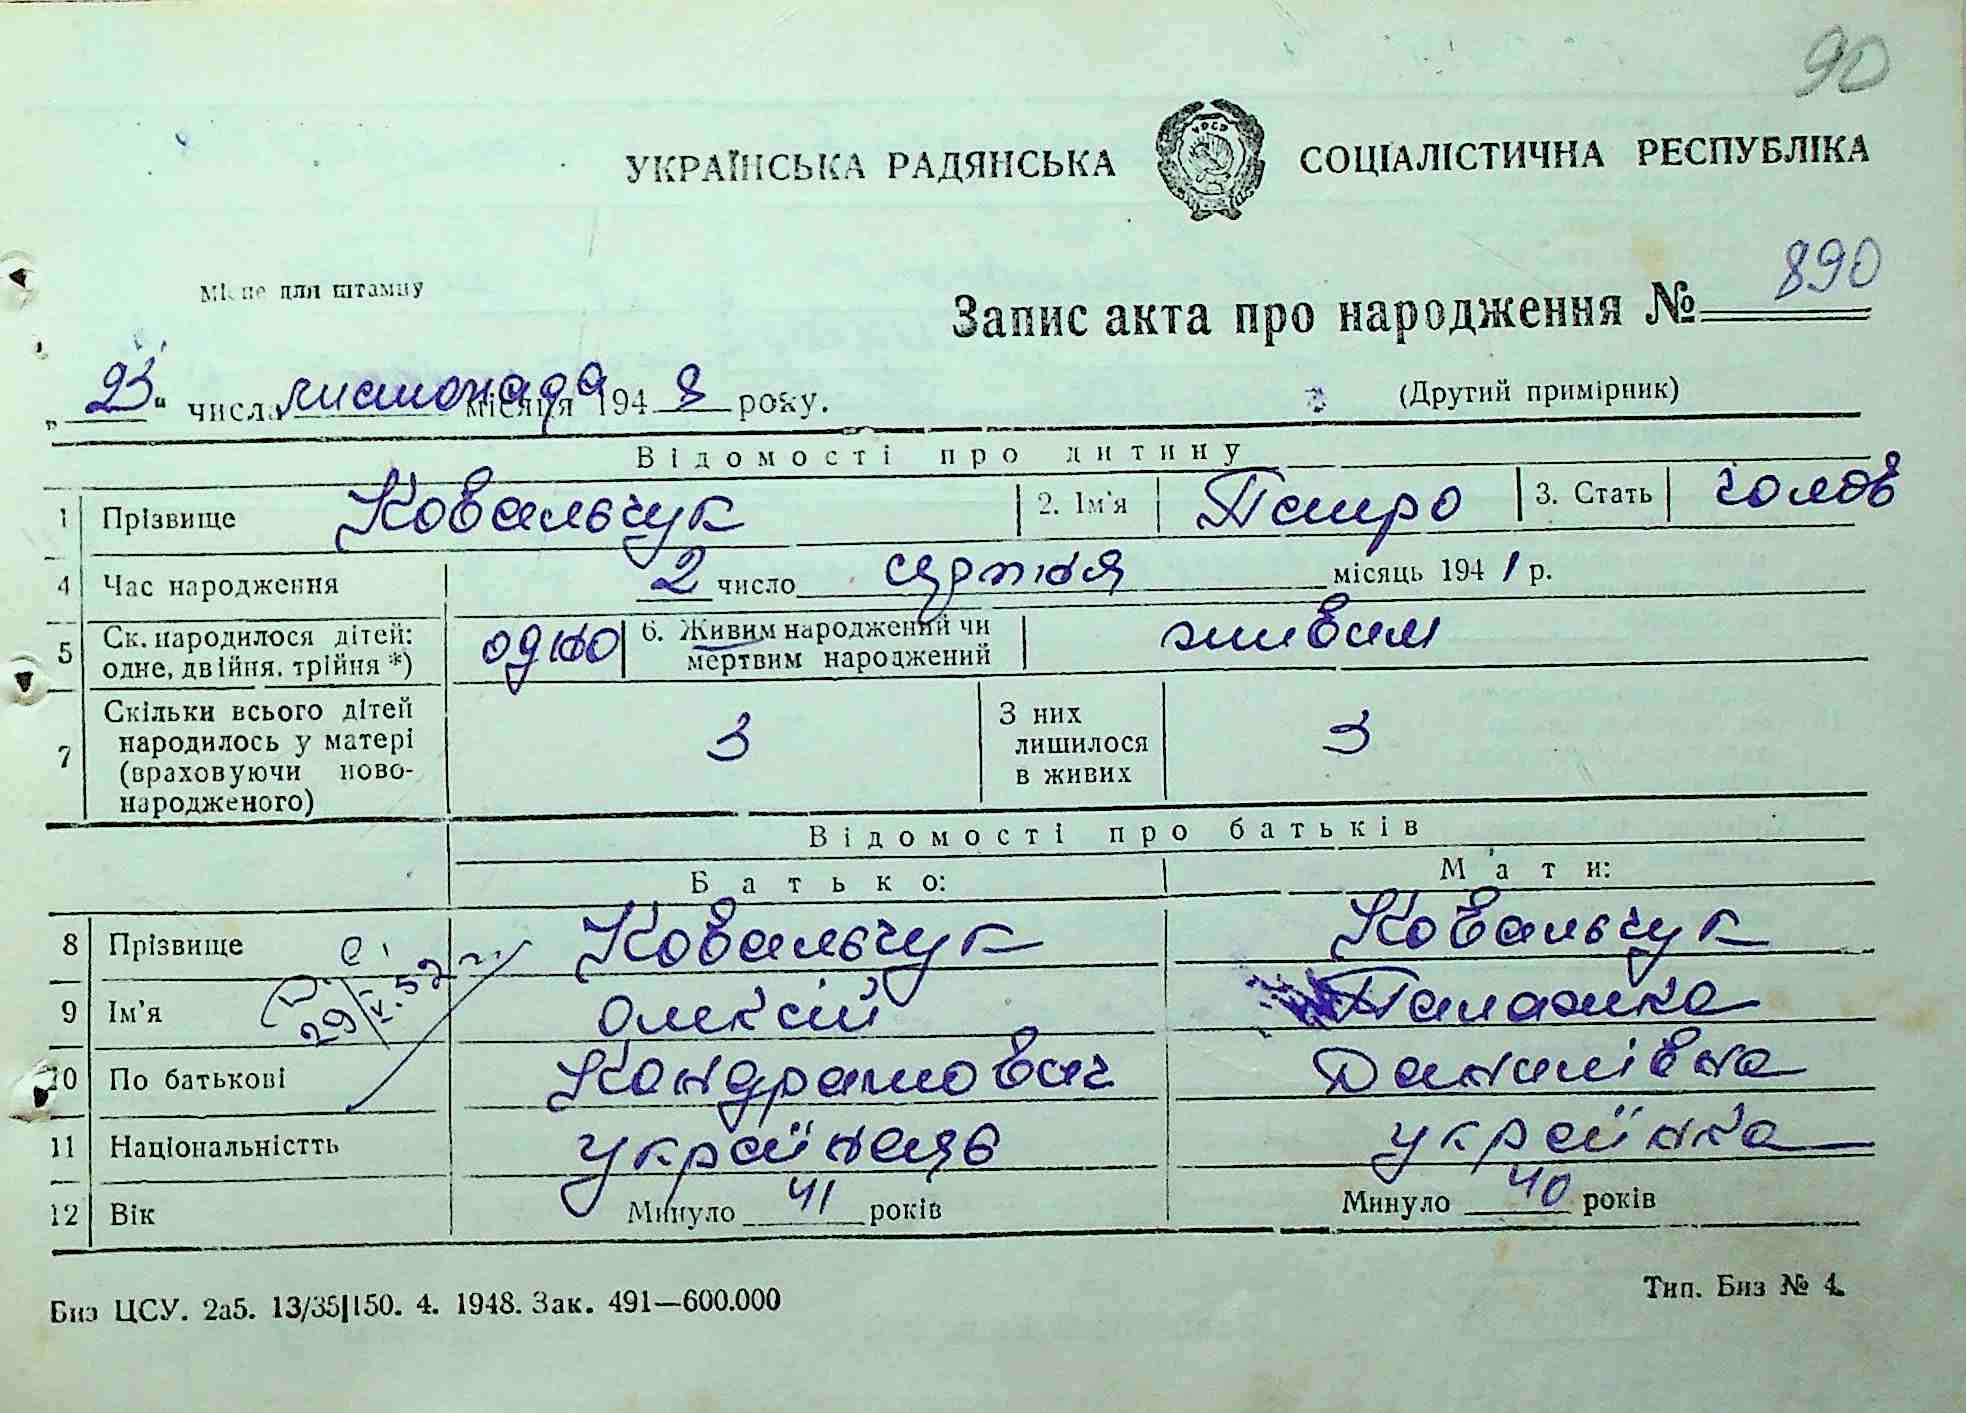 90
УКРАЇНСЬКА РАДЯНСЬКА СОЦІАЛІСТИЧНА РЕСПУБЛІКА
УРСР
Місце для штампу
Запис акта про народження № 890
„23" числа листопада місяця 1948 року.
(Другий примірник)
Відомості про дитину
1 Прізвище Ковальчук 2. Ім'я Петро 3. Стать чолов
4 Час народження 2 число серпня місяць 1941 р.
5 Ск. народилося дітей: одно 6. Живим народжений чи живим
одне, двійня, трійня *) мертвим народжений
7 Скільки всього дітей 3 З них 3
народилось у матері лишилося
(враховуючи ново- в живих
народженого)
Відомості про батьків
Батько: Мати:
8 Прізвище Ковальчук Ковальчук
9 Ім'я Олексій Палажка
29/к.52
10 По батькові Кондратович Данилівна
11 Національністть українець українка
12 Вік Минуло 41 років Минуло 40 років
Биз ЦСУ. 2а5. 13/35|150. 4. 1948. Зак. 491—600.000
Тип. Биз № 4.